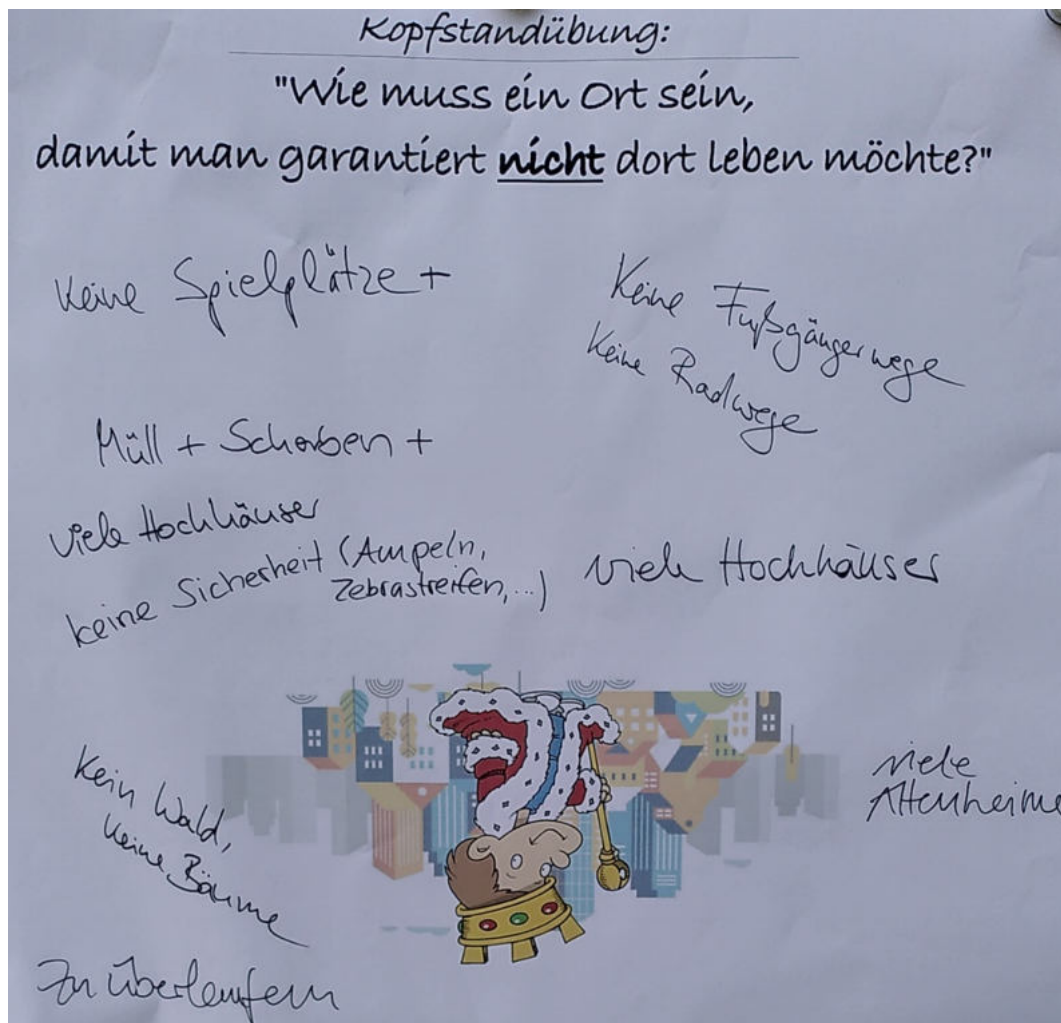 Kopfstandübung:
"Wie muss ein Ort sein,
damit man garantiert nicht dort leben möchte?"
keine Spielplätze +
Keine Fußgängerwege
Keine Radwege
Müll + Scherben +
viele Hochhäuser
keine Sicherheit (Ampeln,
Zebrastreifen,...)
viele Hochhäuser
Kein Wald,
keine Bäume
viele
Altenheime
Zu überlaufen